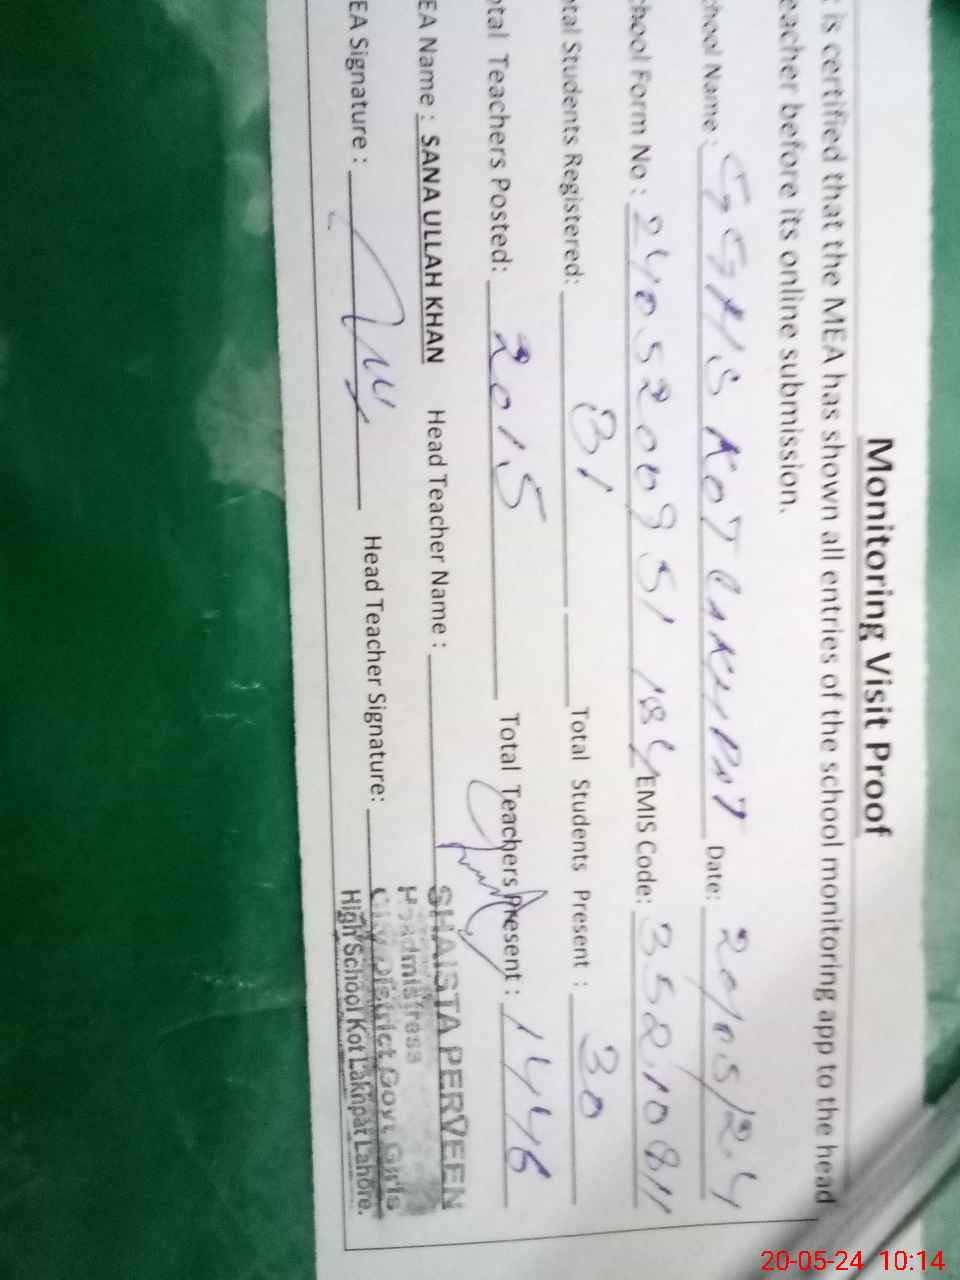 Monitoring Visit Proof
t is certified that the MEA has shown all entries of the school monitoring app to the head
eacher before its online submission.
chool Name : GGHS KOT LAKHPAT Date: 20/05/24
chool Form No : 2405200951184 EMIS Code: 35210811
otal Students Registered: 81 Total Students Present : 30
otal Teachers Posted: 2015 Total Teachers Present : 1446
EA Name : SANA ULLAH KHAN Head Teacher Name :
EA Signature : Head Teacher Signature:
SHAISTA PERVEEN
Headmistress
City District Govt. Girls
High School Kot Lakhpat Lahore.
20-05-24 10:14